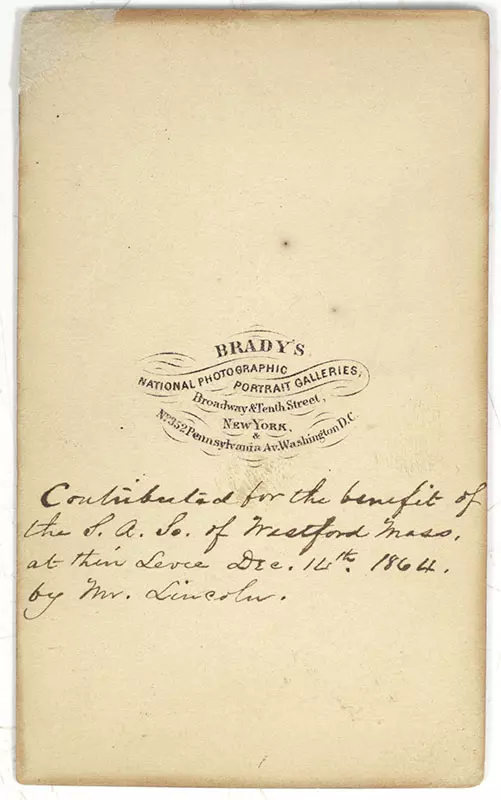 BRADY'S
NATIONAL PHOTOGRAPHIC
PORTRAIT GALLERIES,
Broadway & Tenth Street,
NEW YORK,
&
No. 352 Pennsylvania Av. Washington D.C.
Contributed for the benefit of
the S. A. So. of Westford Mass.
at thin Levee Dec. 14th. 1864.
by Mr. Lincoln.